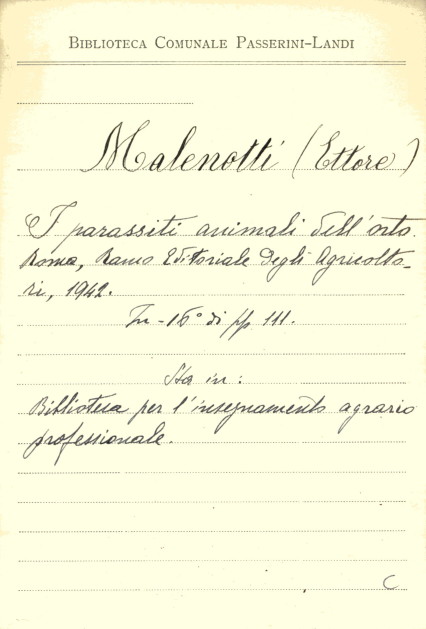 BIBLIOTECA COMUNALE PASSERINI-LANDI
Malenotti (Ettore)
I parassiti animali dell'orto.
Roma, Ramo Editoriale Degli Agricolto-
ri, 1942.
In-16° di pp 111.
Sta in:
Biblioteca per l'insegnamento agrario
professionale.
C